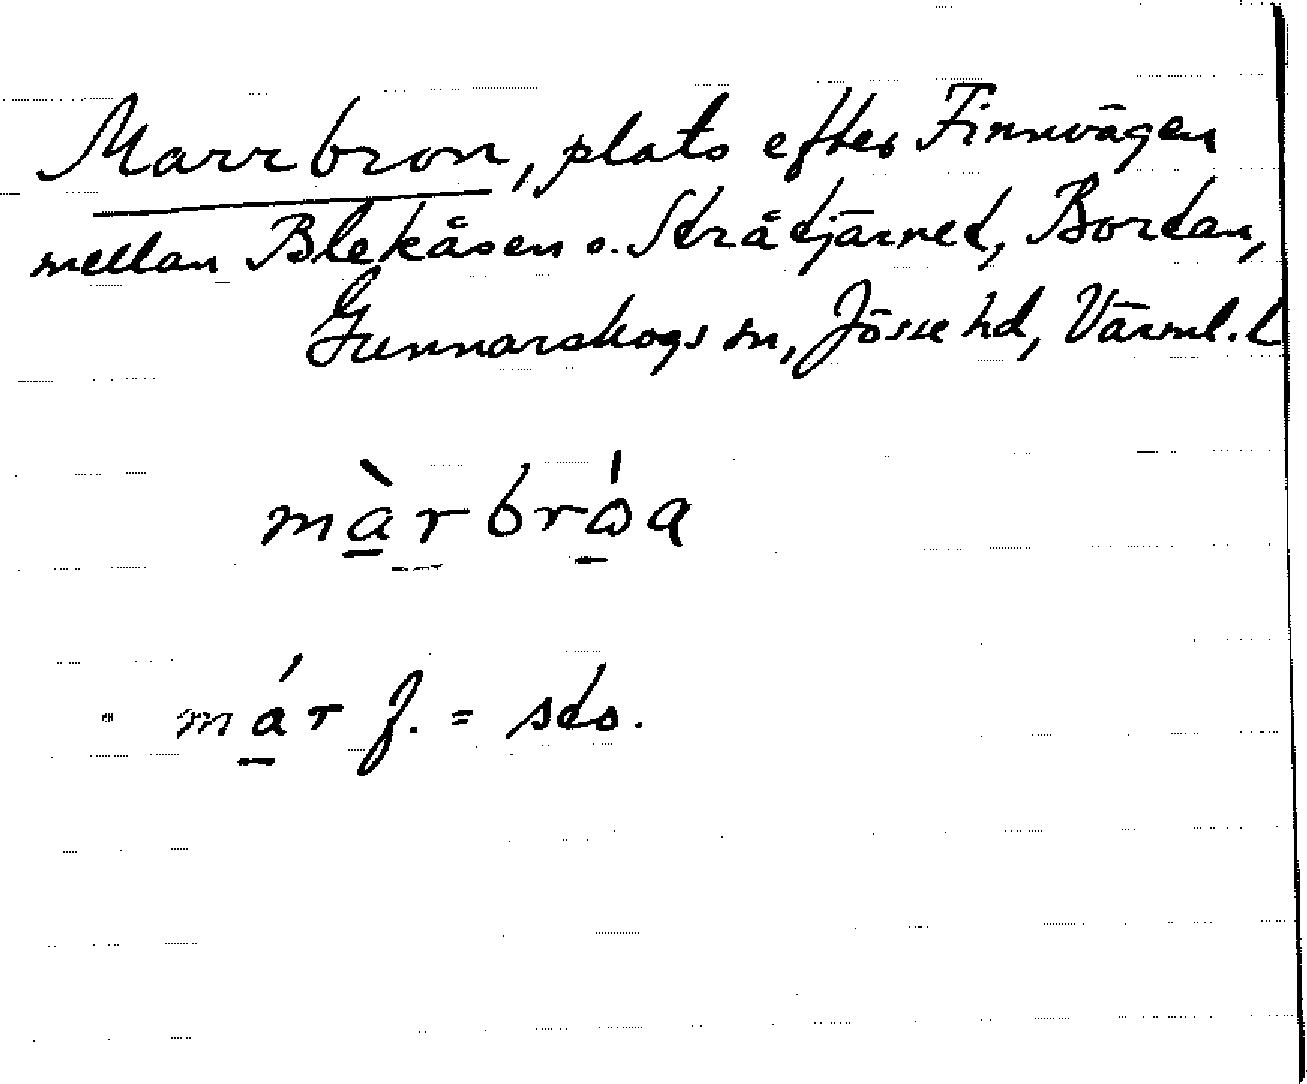 Marrbron, plats efter Finnvägen
mellan Blekåsen o. Stråtjärnet, Bortan,
Gunnarskogs sn, Jösse hd, Värml. l
màrbróa
már f. = sto.